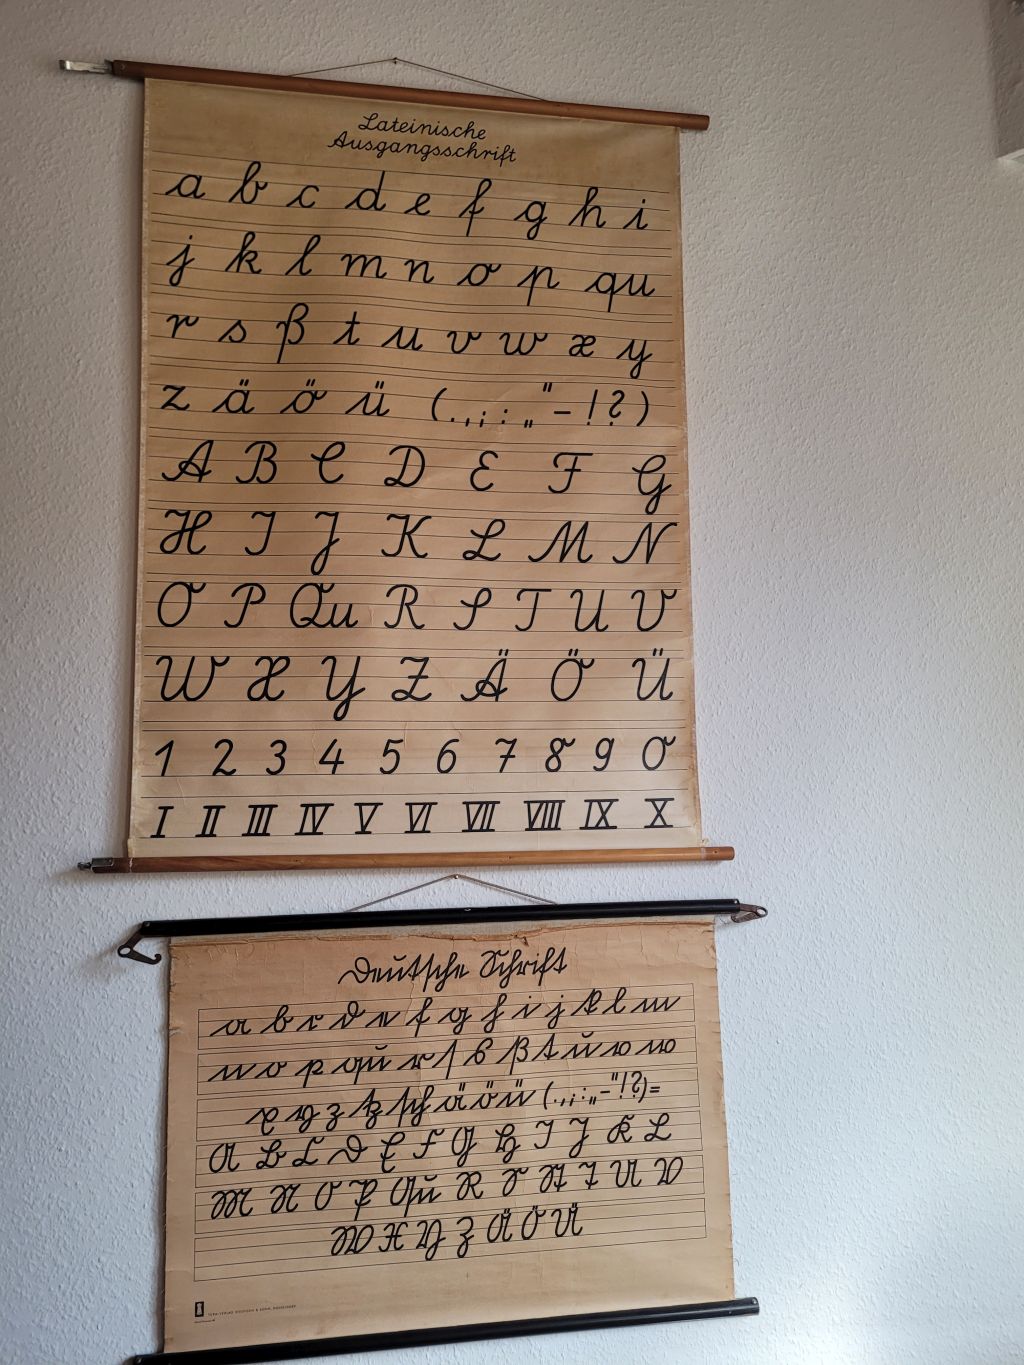 Lateinische
Ausgangsschrift
a b c d e f g h i
j k l m n o p qu
r s ß t u v w x y
z ä ö ü (.,;:„"-!?)
A B C D E F G
H I J K L M N
O P Qu R S T U V
W X Y Z Ä Ö Ü
1 2 3 4 5 6 7 8 9 0
I II III IV V VI VII VIII IX X
Deutsche Schrift
a b c d e f g h i j k l m
n o p qu r ſ s ß t u v w
x y z tz sch ä ö ü (.,;:„-"!?)=
A B C D E F G H I J K L
M N O P Qu R S St T U V
W X Y Z Ä Ö Ü